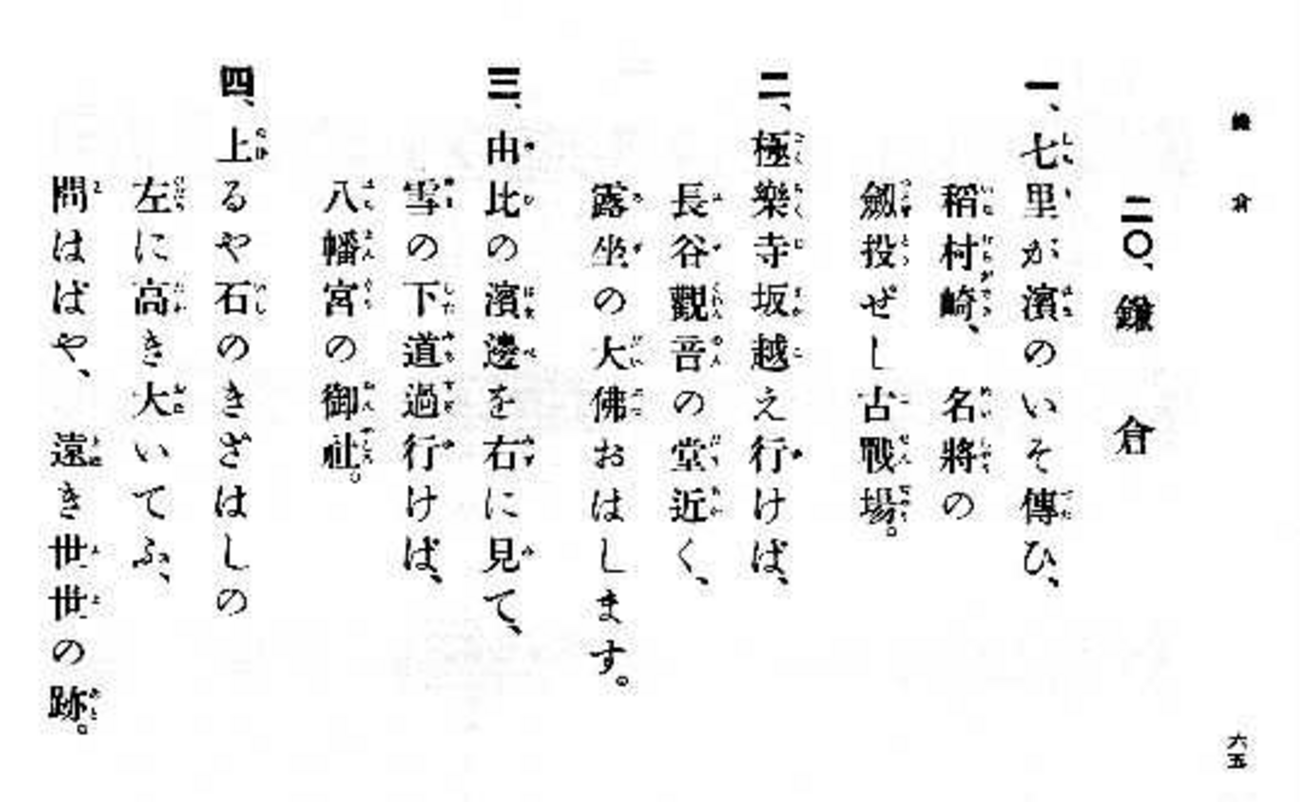 鎌倉
二〇、鎌倉
一、七里が濱のいそ傳ひ、
稻村崎、名將の
劔投ぜし古戰場。
二、極樂寺坂越え行けば、
長谷觀音の堂近く、
露坐の大佛おはします。
三、由比の濱邊を右に見て、
雪の下道過行けば、
八幡宮の御社。
四、上るや石のきざはしの
左に高き大いてふ、
問はばや、遠き世世の跡。
六五